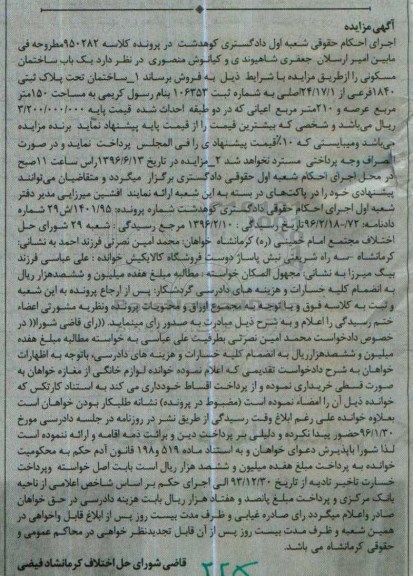 آگهی مزایده
اجرای احکام حقوقی شعبه اول دادگستری کوهدشت در پرونده کلاسه ۹۵۰۲۸۲مطروحه فی
مابین امیر ارسلان جعفری شاهیوندی و کیانوش منصوری در نظر دارد یک باب ساختمان
مسکونی را ازطریق مزایده با شرایط ذیل به فروش برساند ۱_ساختمان تحت پلاک ثبتی
۱۸۴۰فرعی از ۲۴/۱۷/۱اصلی به شماره ثبت ۱۰۶۳۵۳ بنام رسول کریمی به مساحت ۱۵۰متر
مربع عرصه و ۲۱۰متر مربع اعیانی که در دو طبقه احداث شده قیمت پایه ۳/۲۰۰/۰۰۰/۰۰۰
ریال می‌باشد و شخصی که بیشترین قیمت را از قیمت پایه پیشنهاد نماید برنده مزایده
می‌باشد ومیبایستی که ۱۰٪قیمت پیشنهادی را فی المجلس پرداخت نماید و در صورت
انصراف وجه پرداختی مسترد نخواهد شد ۲_مزایده در تاریخ ۱۳۹۶/۶/۱۳راس ساعت ۱۱صبح
در محل اجرای احکام شعبه اول حقوقی دادگستری برگزار میگردد و متقاضیان می‌توانند
پیشنهادی خود را در پاکت‌های در بسته به این شعبه ارائه نمایند افشین میرزایی مدیر دفتر
شعبه اول اجرای احکام حقوقی دادگستری کوهدشت شماره پرونده: ۱۴۰۱/۹۵ش۲۹ شماره
دادنامه: ۹۶/۲/۱۸-۰۷۲تاریخ رسیدگی: ۱۳۹۶/۲/۱۰ مرجع رسیدگی: شعبه ۲۹ شورای حل
اختلاف مجتمع امام خمینی (ره) کرمانشاه خواهان: محمد امین نصرتی فرزند احمد به نشانی:
کرمانشاه -سه راه شریعتی نبش پاساژ دوست فروشگاه کالایکیش خوانده: علی عباسی فرزند
بیک میرزا به نشانی: مجهول المکان خواسته: مطالبه مبلغ هفده میلیون و ششصدهزار ریال
به انضمام کلیه خسارات و هزینه های دادرسی گردشکار: پس از ارجاع پرونده به این شعبه
و ثبت به کلاسه فوق و باتوجه به مجموع اوراق و محتویات پرونده ونظریه مشورتی اعضاء
ختم رسیدگی را اعلام و به شرح ذیل مبادرت به صدور رای مینماید ((رای قاضی شورا)) در
خصوص دادخواست محمد امین نصرتی بطرفیت علی عباسی به خواسته مطالبه مبلغ هفده
میلیون و ششصدهزارریال به انضمام کلیه خسارات و هزینه های دادرسی، باتوجه به اظهارات
خواهان به شرح دادخواست تقدیمی که اعلام نموده خوانده لوازم خانگی از مغازه خواهان به
صورت قسطی خریداری نموده و از پرداخت اقساط خودداری می کند به استناد کارتکس که
خوانده ذیل آن را امضاء نموده است (مضبوط در پرونده) نشانه طلبکار بودن خواهان است
بعلاوه خوانده علی رغم ابلاغ وقت رسیدگی از طریق نشر در روزنامه در جلسه دادرسی مورخ
۹۶/۱/۳۰حضور پیدا نکرده و دلیلی بر پرداخت دین و برائت ذمه اقامه و ارائه ننموده است
لذا شورا باپذیرش دعوای خواهان و به استناد ماده ۵۱۹ و۱۹۸ قانون آدم حکم به محکومیت
خوانده به پرداخت مبلغ هفده میلیون و ششصد هزار ریال است بابت اصل خواسته وپرداخت
خسارت تاخیر تادیه از تاریخ ۹۳/۱۲/۳۰ الی اجرای حکم بر اساس شاخص اعلامی از ناحیه
بانک مرکزی و پرداخت مبلغ پانصد و هفتاد هزار ریال بابت هزینه دادرسی در حق خواهان
صادر واعلام میگردد رای صادره غیابی و ظرف مدت بیست روز پس از ابلاغ قابل واخواهی در
همین شعبه و ظرف مدت بیست روز پس از آن قابل تجدیدنظر خواهی در محاکم عمومی و
حقوقی کرمانشاه می باشد.
قاضی شورای حل اختلاف کرمانشاد فیضی
۲۲۵